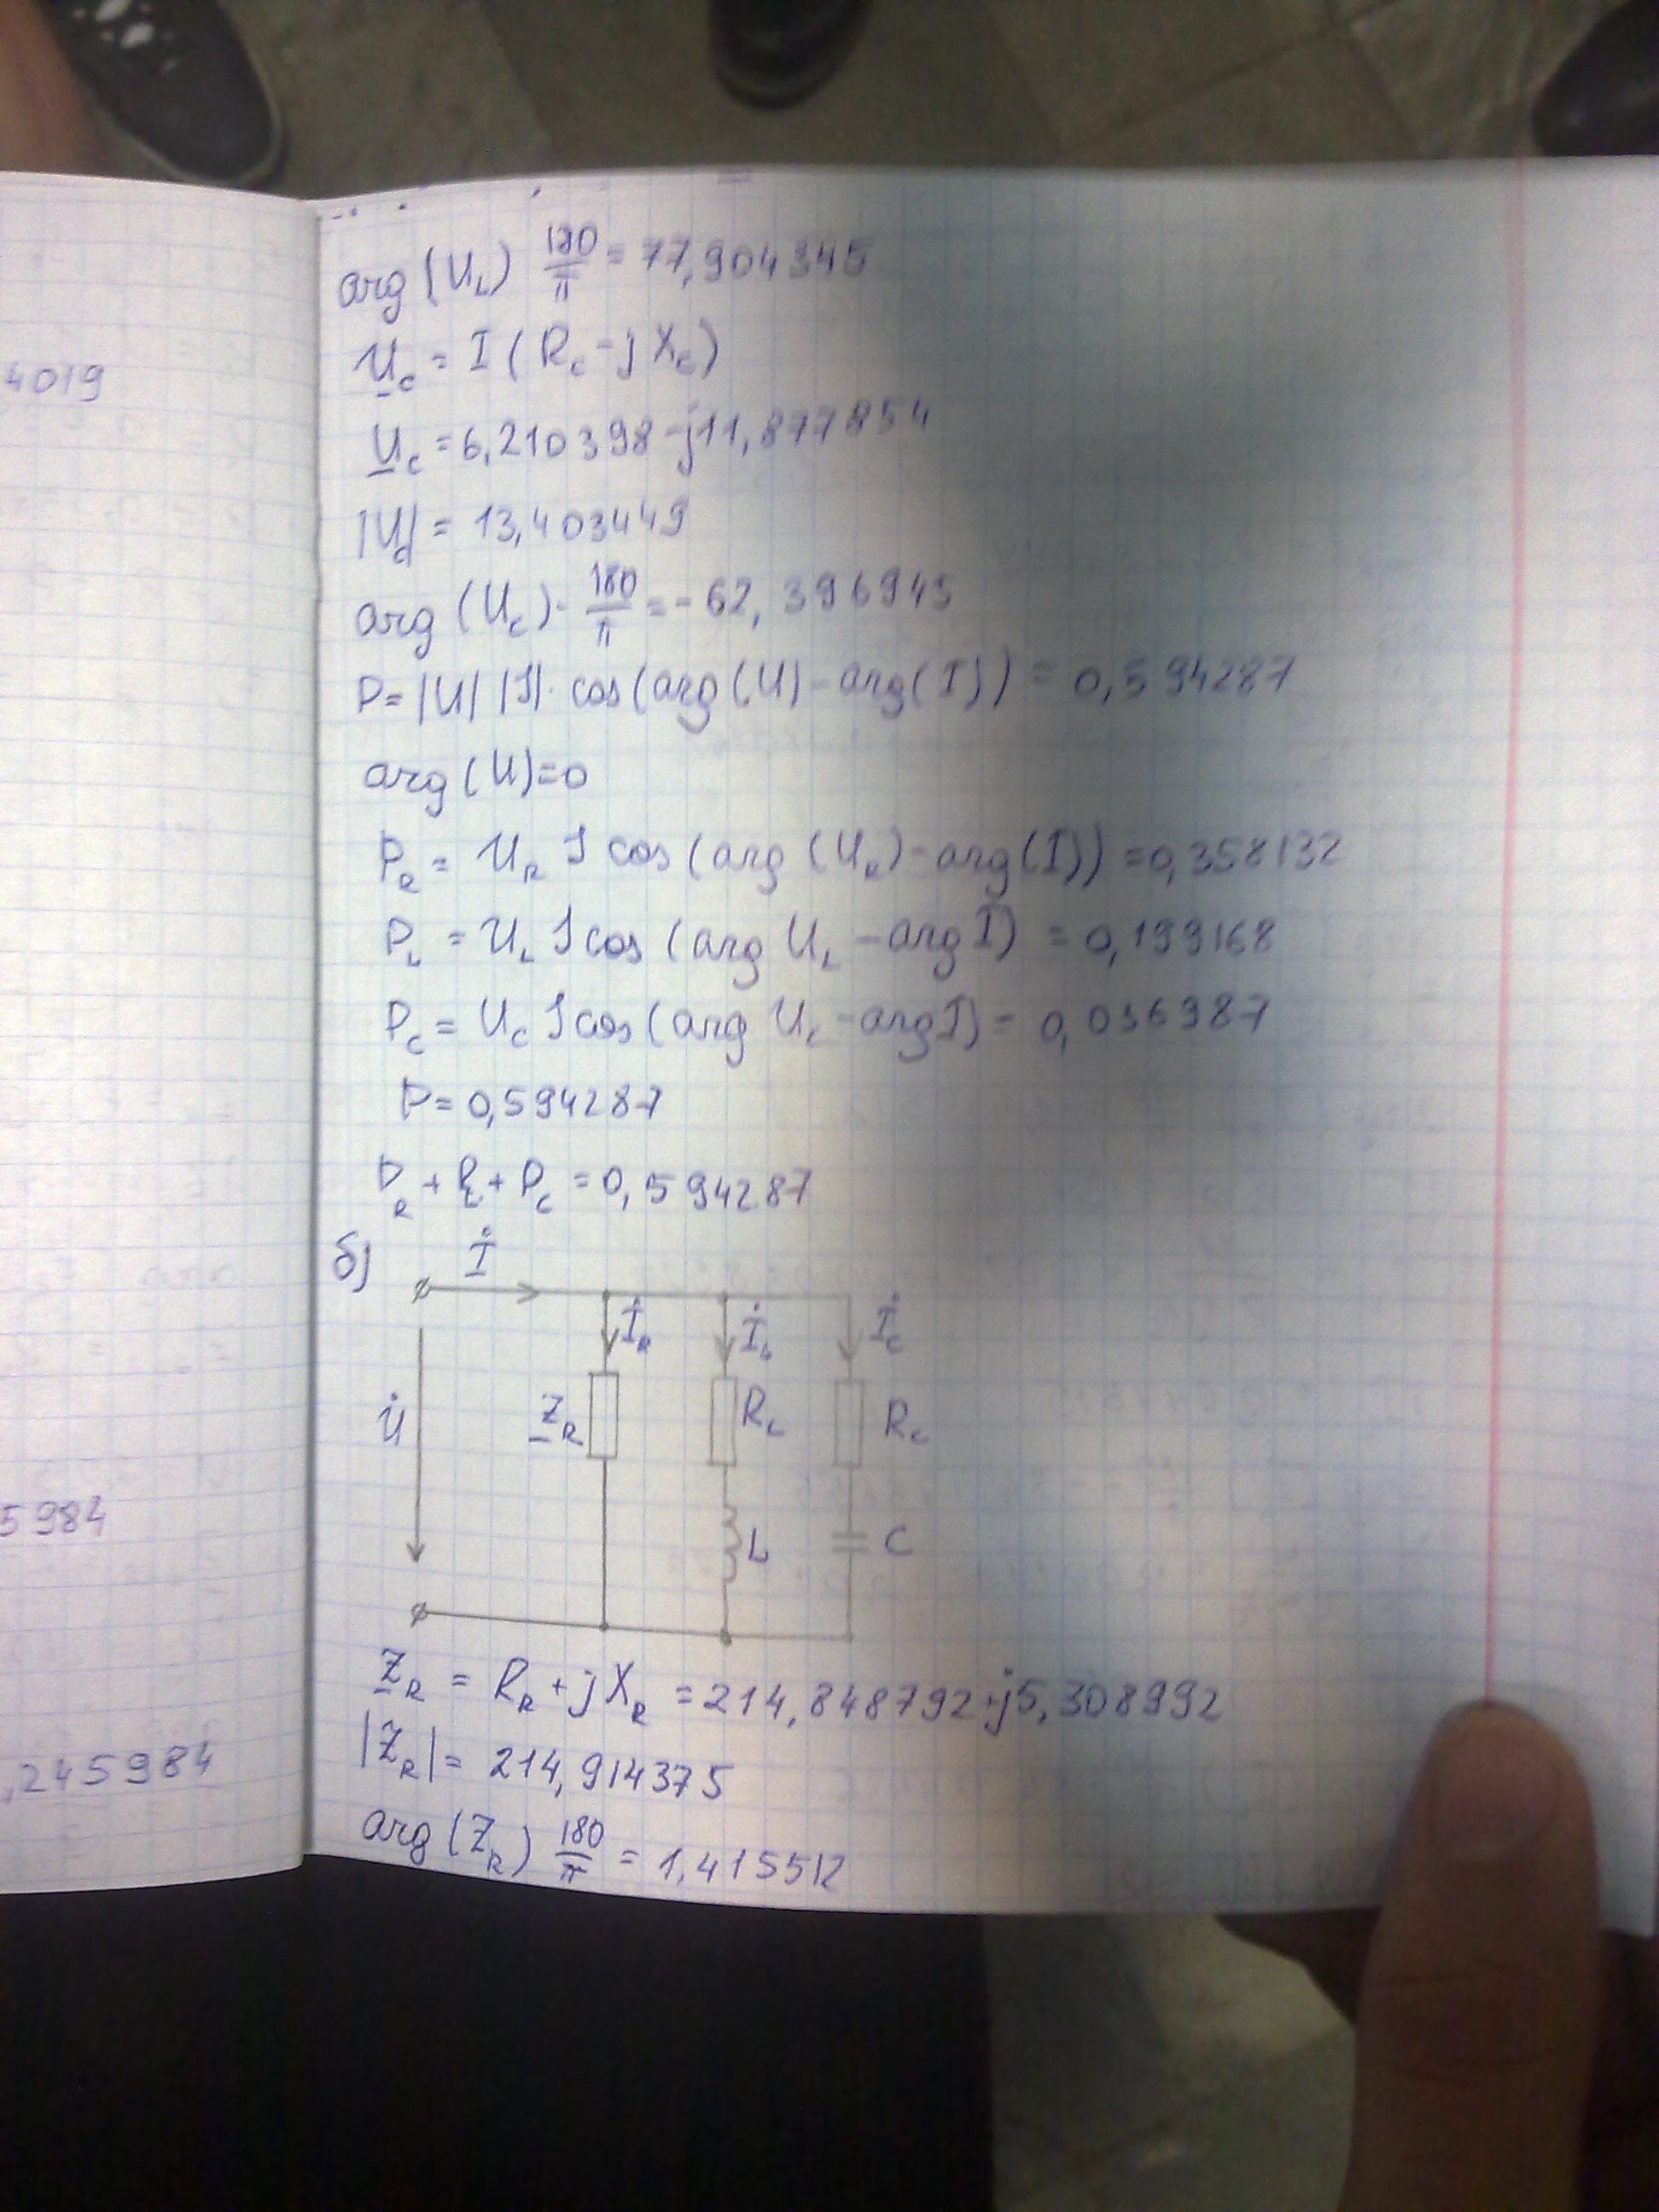 4019
5984
,245984
arg(U_L) 180/π = 77,904345
U_C = I(R_C - jX_C)
U_C = 6,210398 - j11,877854
|U_C| = 13,403449
arg(U_C)·180/π = -62,396945
P = |U||I|·cos(arg(U) - arg(I)) = 0,594287
arg(U)=0
P_R = U_R I cos(arg(U_R) - arg(I)) = 0,358132
P_L = U_L I cos(arg U_L - arg I) = 0,199168
P_C = U_C I cos(arg U_C - arg I) = 0,036987
P = 0,594287
P_R + P_L + P_C = 0,594287
б) İ
İ_R İ_L İ_C
U̇ Z_R R_L R_C
L C
Z_R = R_R + jX_R = 214,848792+j5,308992
|Z_R| = 214,914375
arg(Z_R) 180/π = 1,415512